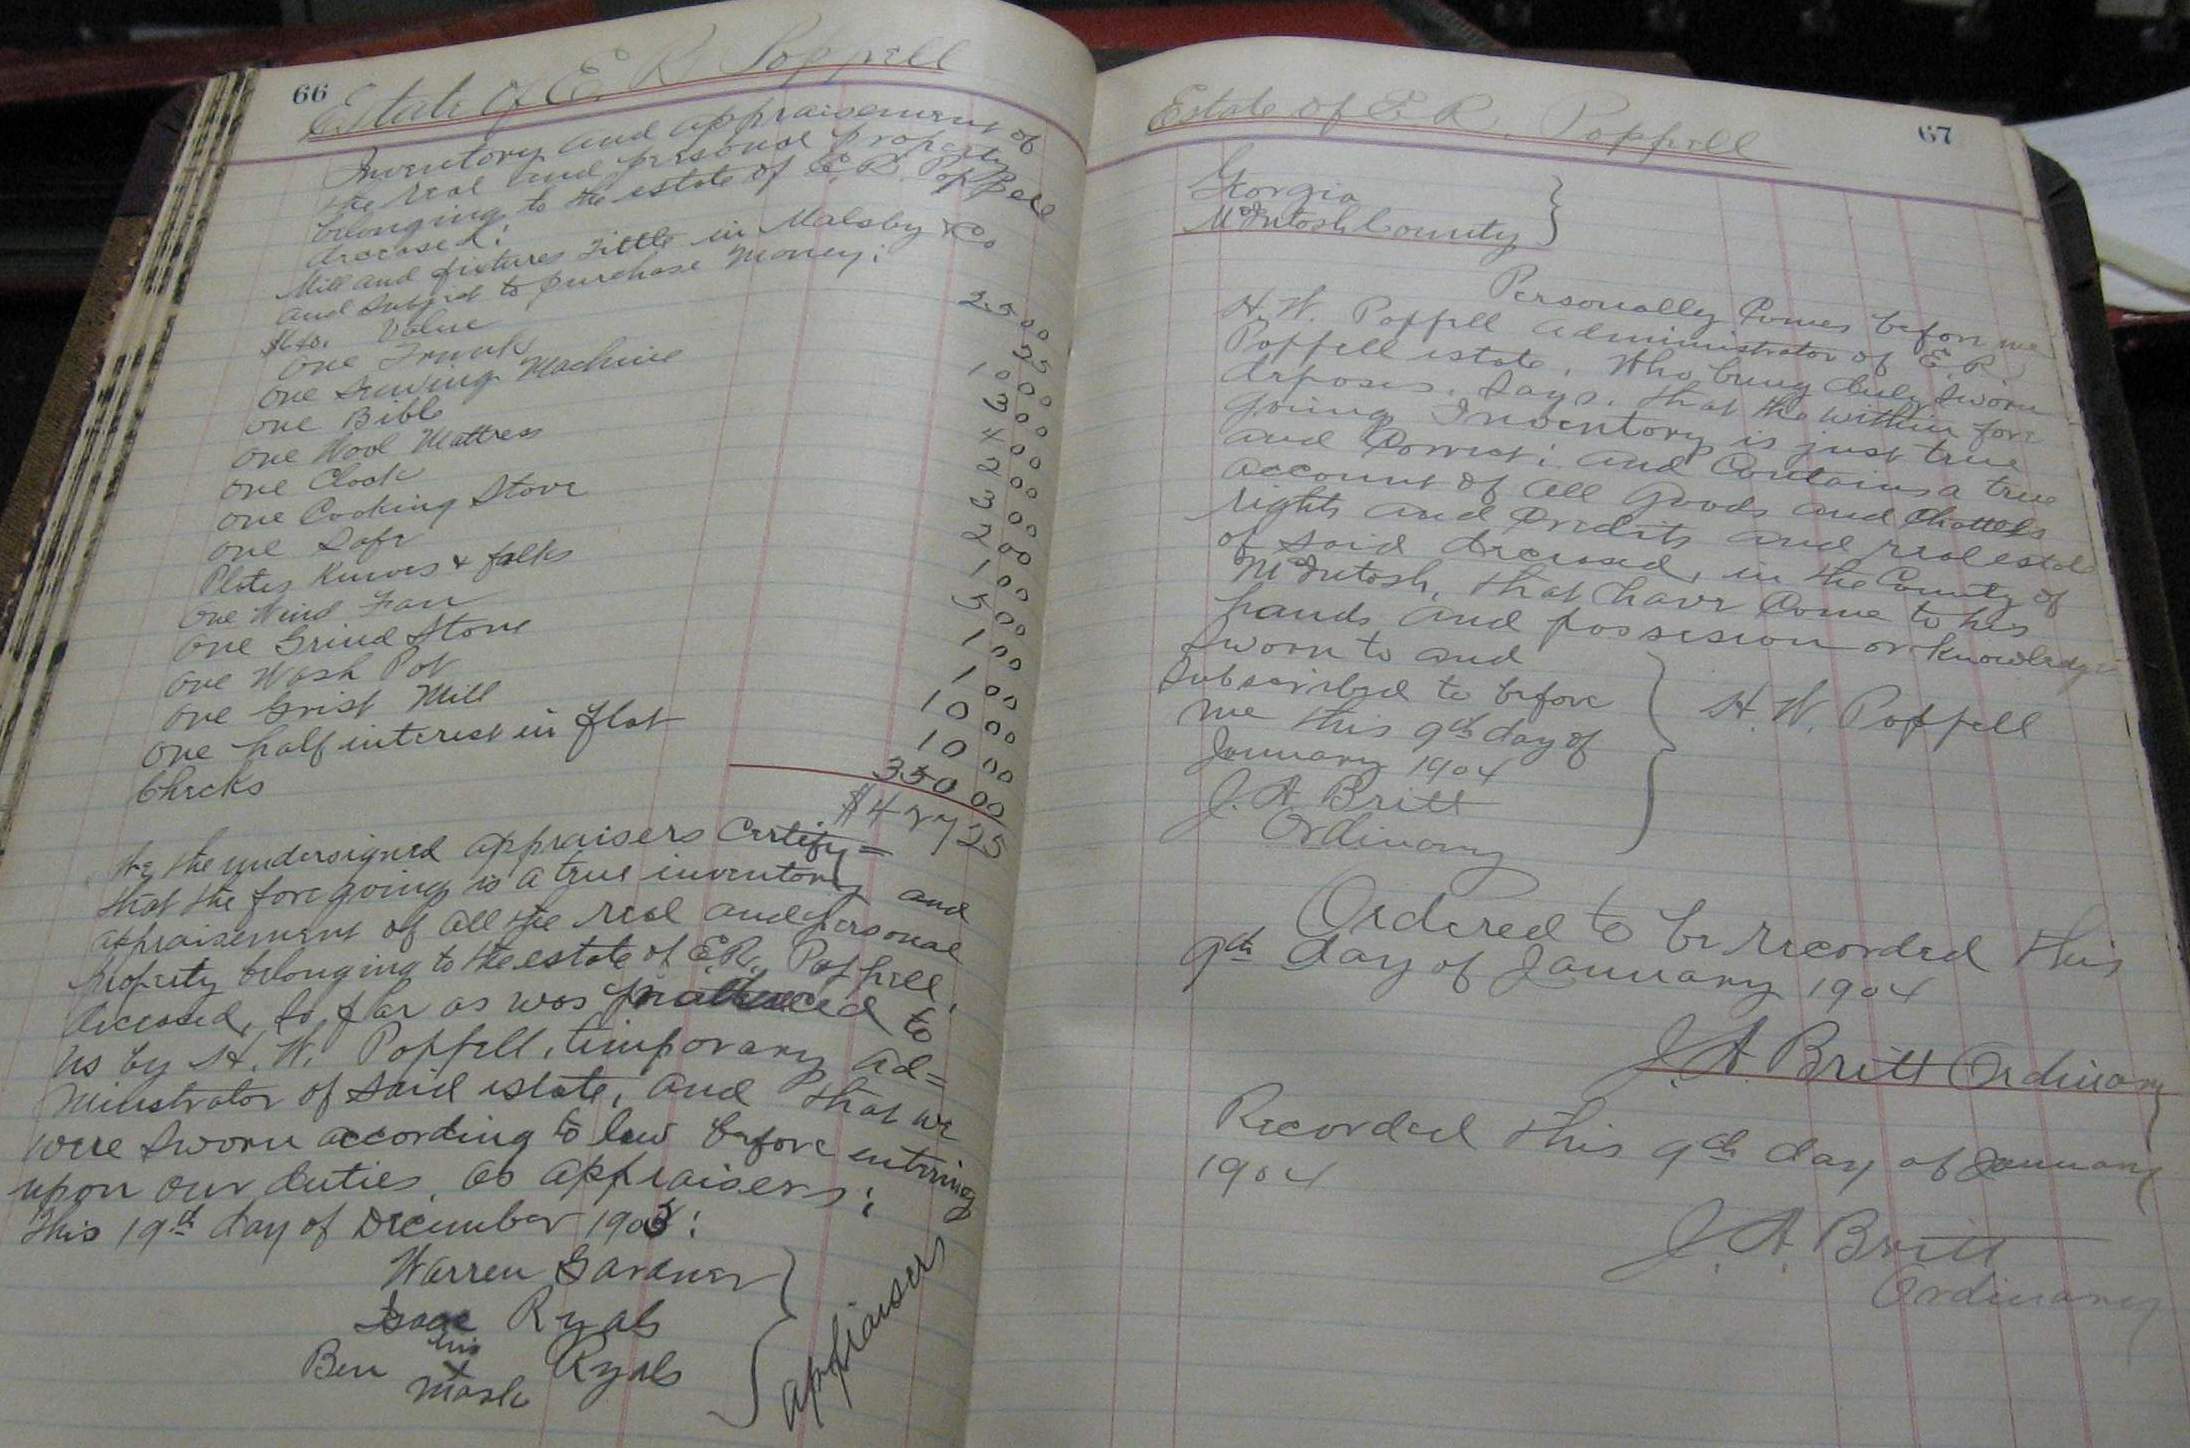 66
Estate of E. R. Poppell
Inventory and appraisement of
the real and personal property
belonging to the estate of E. R. Poppell
deceased:
Mill and fixtures Tittle in Malsby & Co
and subject to purchase money;
Value 25 00
One Trunk 25
One Sewing Machine 10 00
One Bible 3 00
One Wool Mattress 4 00
One Clock 2 00
One Cooking Stove 3 00
One Safe 2 00
Plates Knives & folks 1 00
One Wind Fan 5 00
One Grind Stone 1 00
One Wash Pot 1 00
One Grist Mill 10 00
One half interest in flat 10 00
Checks 350 00
$427 25
We the undersigned appraisers Certify=
that the fore going is a true inventory and
appraisement of all the real and personal
property belonging to the estate of E.R. Poppell,
deceased, so far as was produced to
us by H. W. Poppell, temporary ad=
ministrator of said estate, and that we
were sworn according to law before entering
upon our duties, as appraisers;
This 19th day of December 1903:
Warren Gardner
Isaac Ryals
his
Ben x Ryals
mark
appraisers
67
Estate of E. R. Poppell
Georgia
McIntosh County
Personally Comes before me
H. W. Poppell administrator of E. R.
Poppell estate, Who being duly sworn
deposes, says, that the within fore
going Inventory is just true
and Correct; and Contains a true
account of all goods and Chattels
rights and Credits and real estate
of said deceased, in the County of
McIntosh, that have Come to his
hands and possession or knowledge
Sworn to and
Subscribed to before
me this 9th day of
January 1904
H. W. Poppell
J. A. Britt
Ordinary
Ordered to be recorded this
9th day of January 1904
J. A. Britt Ordinary
Recorded this 9th day of January
1904
J. A. Britt
Ordinary